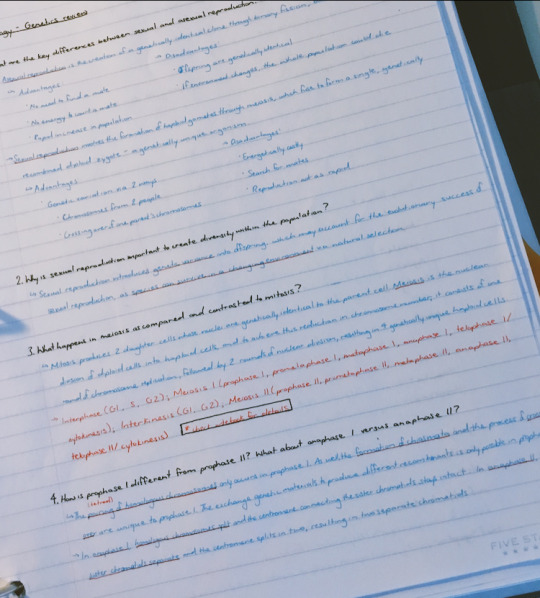 ogy - Genetics review
at are the key differences between sexual and asexual reproduction?
Asexual reproduction is the creation of a genetically identical clone through binary fission,
↳ Advantages:
· No need to find a mate
· No energy to court a mate
· Rapid increase in population
↳ Disadvantages:
· Offspring are genetically identical
· If environment changes, the whole population could die
↳ Sexual reproduction involves the formation of haploid gametes through meiosis, which fuse to form a single, genetically
recombined diploid zygote - a genetically unique organism
↳ Advantages
· Genetic variation via 2 ways
· Chromosomes from 2 people
· Crossing over of one parent's chromosomes
↳ Disadvantages:
· Energetically costly
· Search for mates
· Reproduction not as rapid
2. Why is sexual reproduction important to create diversity within the population?
↳ Sexual reproduction introduces genetic variance into offspring, which may account for the evolutionary success of
sexual reproduction, as species can survive in a changing environment via natural selection
3. What happens in meiosis as compared and contrasted to mitosis?
↳ Mitosis produces 2 daughter cells whose nuclei are genetically identical to the parent cell. Meiosis is the nuclear
division of diploid cells into haploid cells and to achieve this reduction in chromosome number, it consists of one
round of chromosome replication, followed by 2 rounds of nuclear division, resulting in 4 genetically unique haploid cells
↳ Interphase (G1, S, G2), Meiosis I (prophase I, prometaphase I, metaphase I, anaphase I, telophase I/
cytokinesis), Interkinesis (G1, G2), Meiosis II (prophase II, prometaphase II, metaphase II, anaphase II,
telophase II/cytokinesis) * for details
4. How is prophase I different from prophase II? What about anaphase I versus anaphase II?
↳ The pairing of homologous chromosomes only occurs in prophase I. As well the formation of chiasmata and the process of
over are unique to prophase I. The exchange genetic materials to produce different recombinants is only possible in
↳ In anaphase I, homologous chromosomes split and the centromere connecting the sister chromatids stays intact. In anaphase II,
sister chromatids separate and the centromere splits in two, resulting in two separate chromatids
FIVE STA